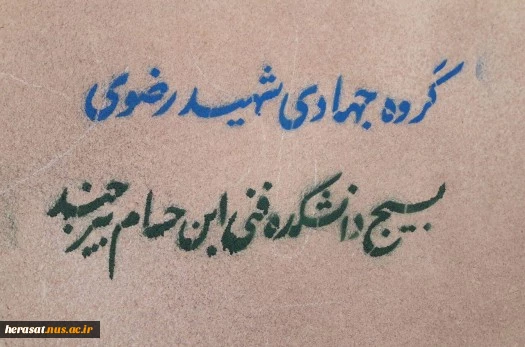 گروه جهادی شهید رضوی
بسیج دانشکده فنی ابن حسام بیرجند
herasat.nus.ac.ir